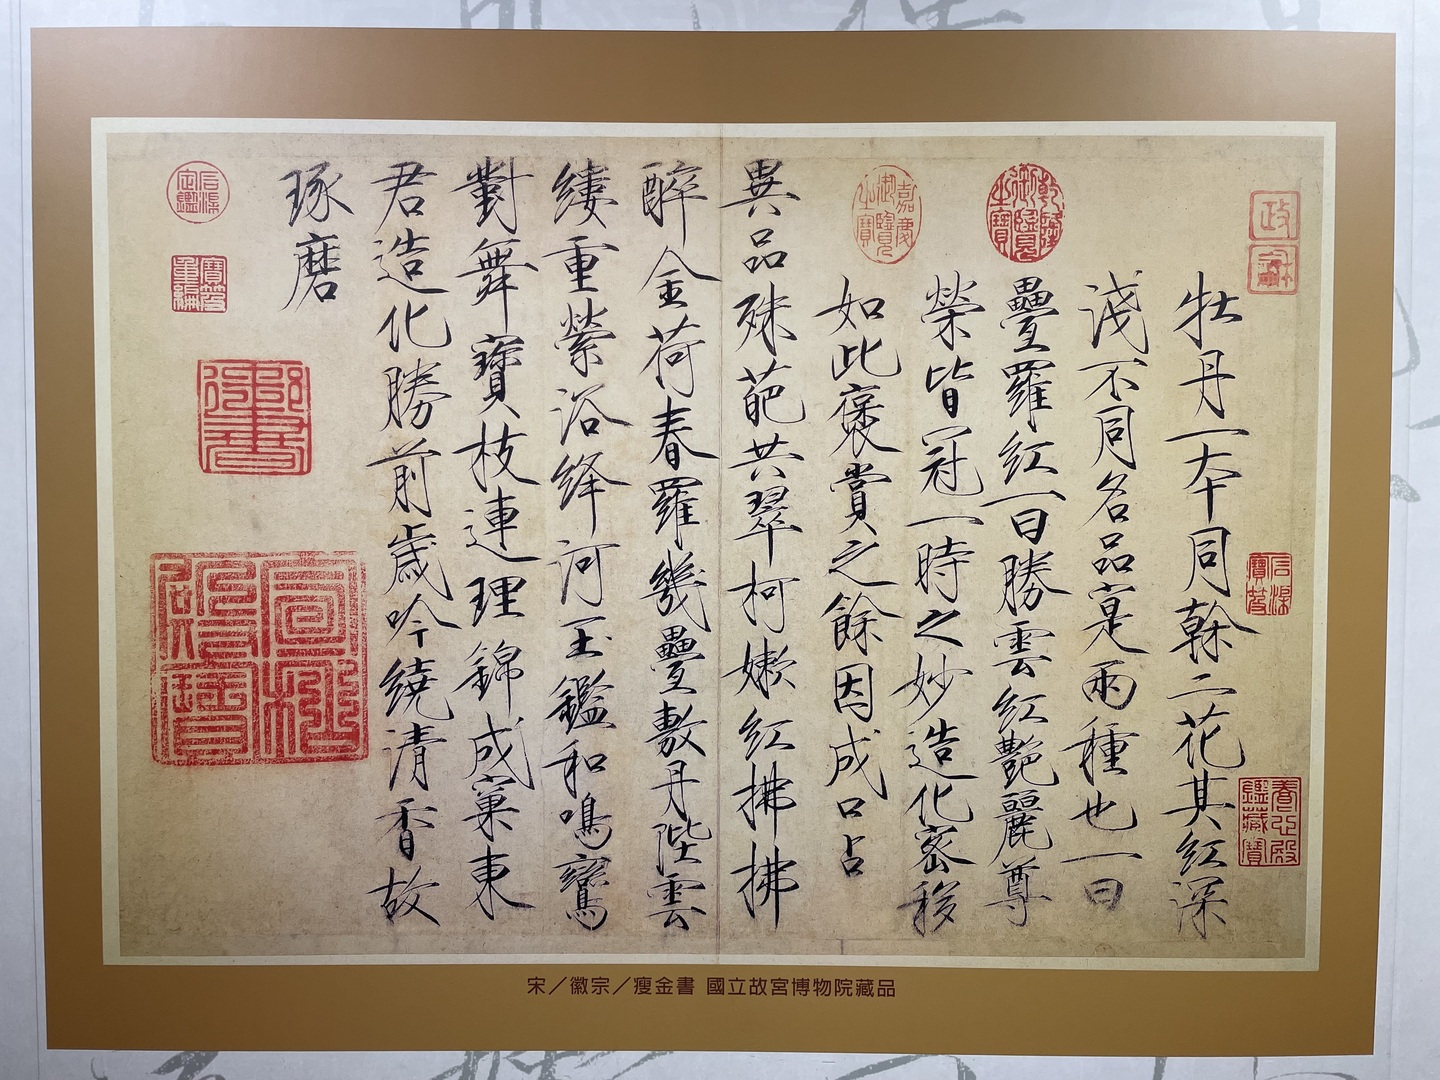 牡丹一本同榦二花其紅深
淺不同名品寔兩種也一曰
疊羅紅一曰勝雲紅艷麗尊
榮皆冠一時之妙造化密移
如此褒賞之餘因成口占
異品殊葩共翠柯嫩紅拂拂
醉金荷春羅幾疊敷丹陛雲
縷重縈浴絳河玉鑑和鳴鸞
對舞寶枝連理錦成窠東
君造化勝前歲吟繞清香故
琢磨
政
龢
乾隆御覽之寶
嘉慶御覽之寶
養心殿鑑藏寶
宣統御覽之寶
宋/徽宗/瘦金書 國立故宮博物院藏品